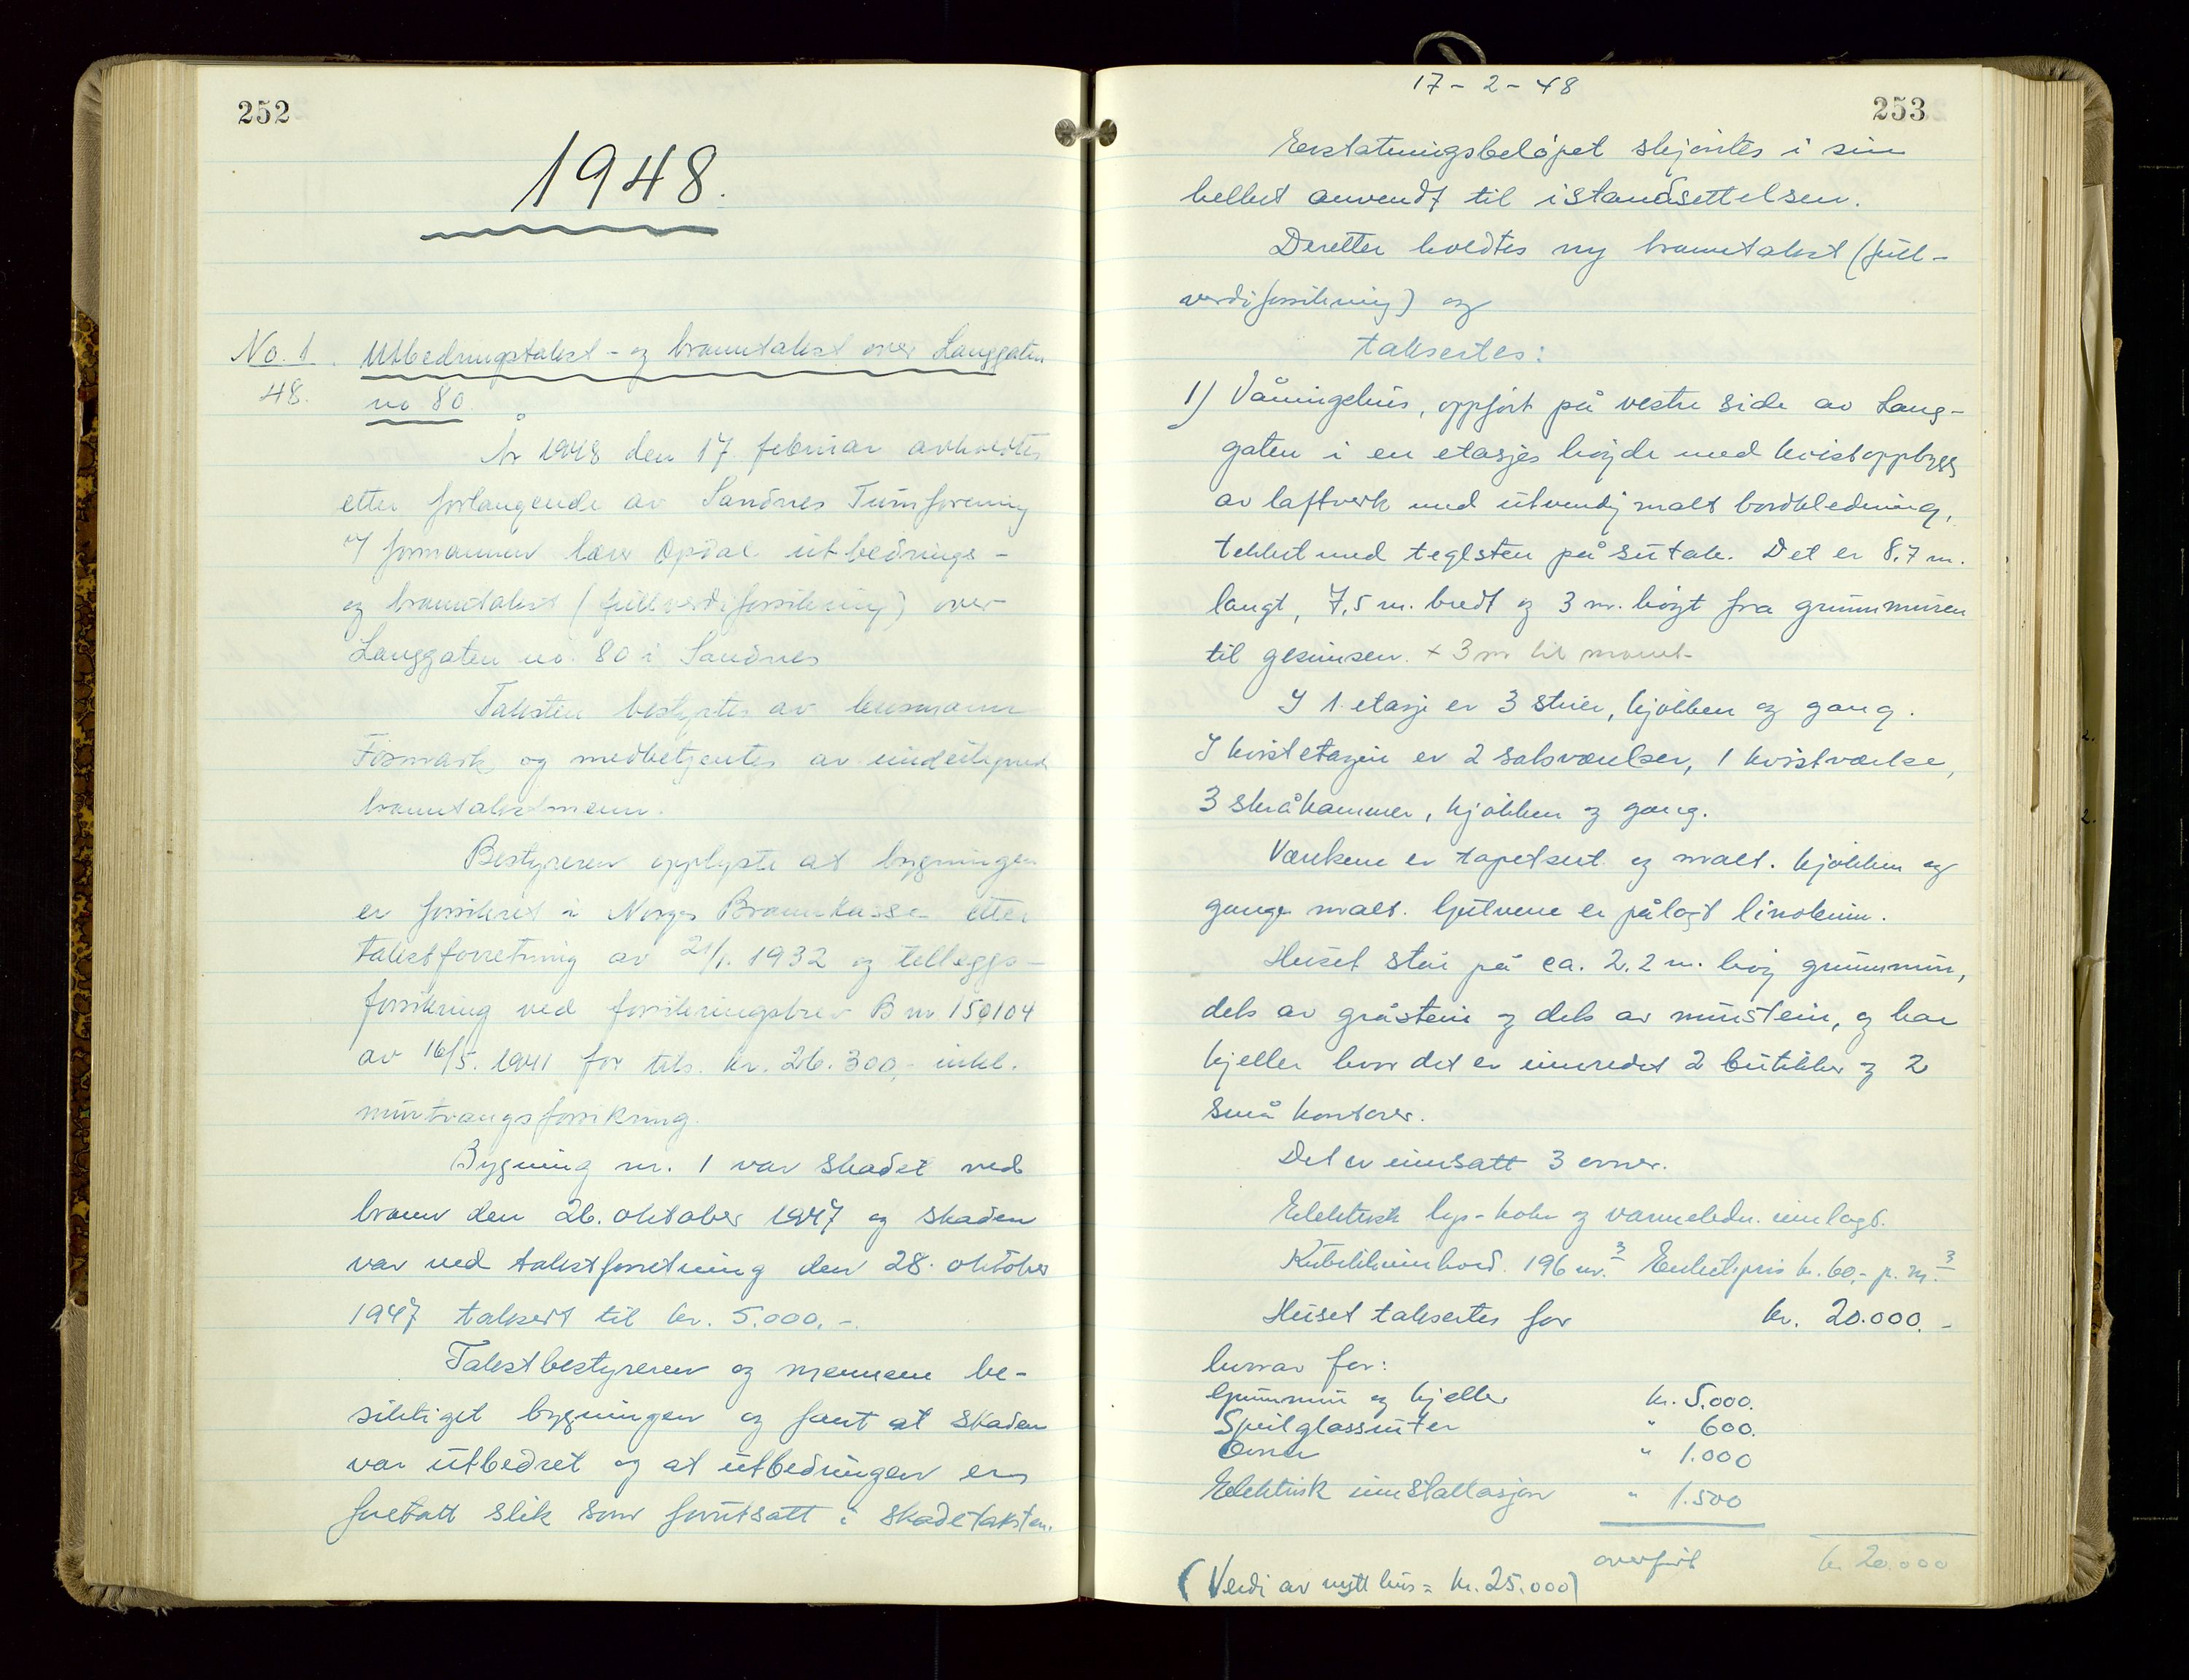 252
1948.
No. 1. Utbedringstakst- og branntakst over Langgaten
48. no 80
År 1948 den 17. februar avholdtes
etter forlangende av Sandnes Turnforening
v/ formannen lærer Opdal utbedrings-
og branntakst (fullverdiforsikring) over
Langgaten no. 80 i Sandnes
Taksten bestyrtes av lensmann
Fosmark og medbetjentes av undertegnede
branntakstmenn.
Bestyreren opplyste at bygningen
er forsikret i Norges Brannkasse etter
takstforretning av 21/1. 1932 og tilleggs-
forsikring ved forsikringsbrev B nr 150104
av 16/5. 1941 for tils. kr. 26.300,- inkl.
murtvangsforsikring.
Bygning nr. 1 var skadet ved
brann den 26. oktober 1947 og skaden
var ved takstforretning den 28. oktober
1947 taksert til kr. 5.000.-.
Takstbestyreren og mennene be-
siktiget bygningen og fant at skaden
var utbedret og at utbedringen er
foretatt slik som forutsatt i skadetaksten.
17-2-48
253
Erstatningsbeløpet skjøntes i sin
helhet anvendt til istandsettelsen.
Deretter holdtes ny branntakst (full-
verdiforsikring) og
taksertes:
1) Våningshus, oppført på vestre side av Lang-
gaten i en etasjes høyde med kvistoppbygg
av laftverk med utvendig malt bordkledning,
tekket med teglsten på sutak. Det er 8,7 m.
langt, 7,5 m. bredt og 3 m. høgt fra grunnmuren
til gesimsen. + 3 m til mønet-
I 1 etasje er 3 stuer, kjøkken og gang.
I kvistetagen er 2 salsværelser, 1 kvistværelse,
3 skråkammer, kjøkken og gang.
Værelsene er tapetsert og malt. Kjøkken og
gange malt. Gulvene er pålagt linoleum.
Huset står på ca. 2,2 m. høy grunnmur,
dels av gråstein og dels av murstein, og har
kjeller hvor det er innredet 2 butikker og 2
små kontorer.
Det er innsatt 3 ovner.
Elektrisk lys- koke og varmeledn. innlagt.
Kubikkinnhold. 196 m.3 Enhetspris kr. 60,- p. m.3
Huset taksertes for kr. 20.000.-
hvorav for:
Grunnmur og kjeller kr. 5.000.
Speilglassruter " 600.
Ovner " 1.000
Elektrisk innstallasjon " 1.500
overført kr 20.000
(Verdi av nytt hus = kr. 25.000)